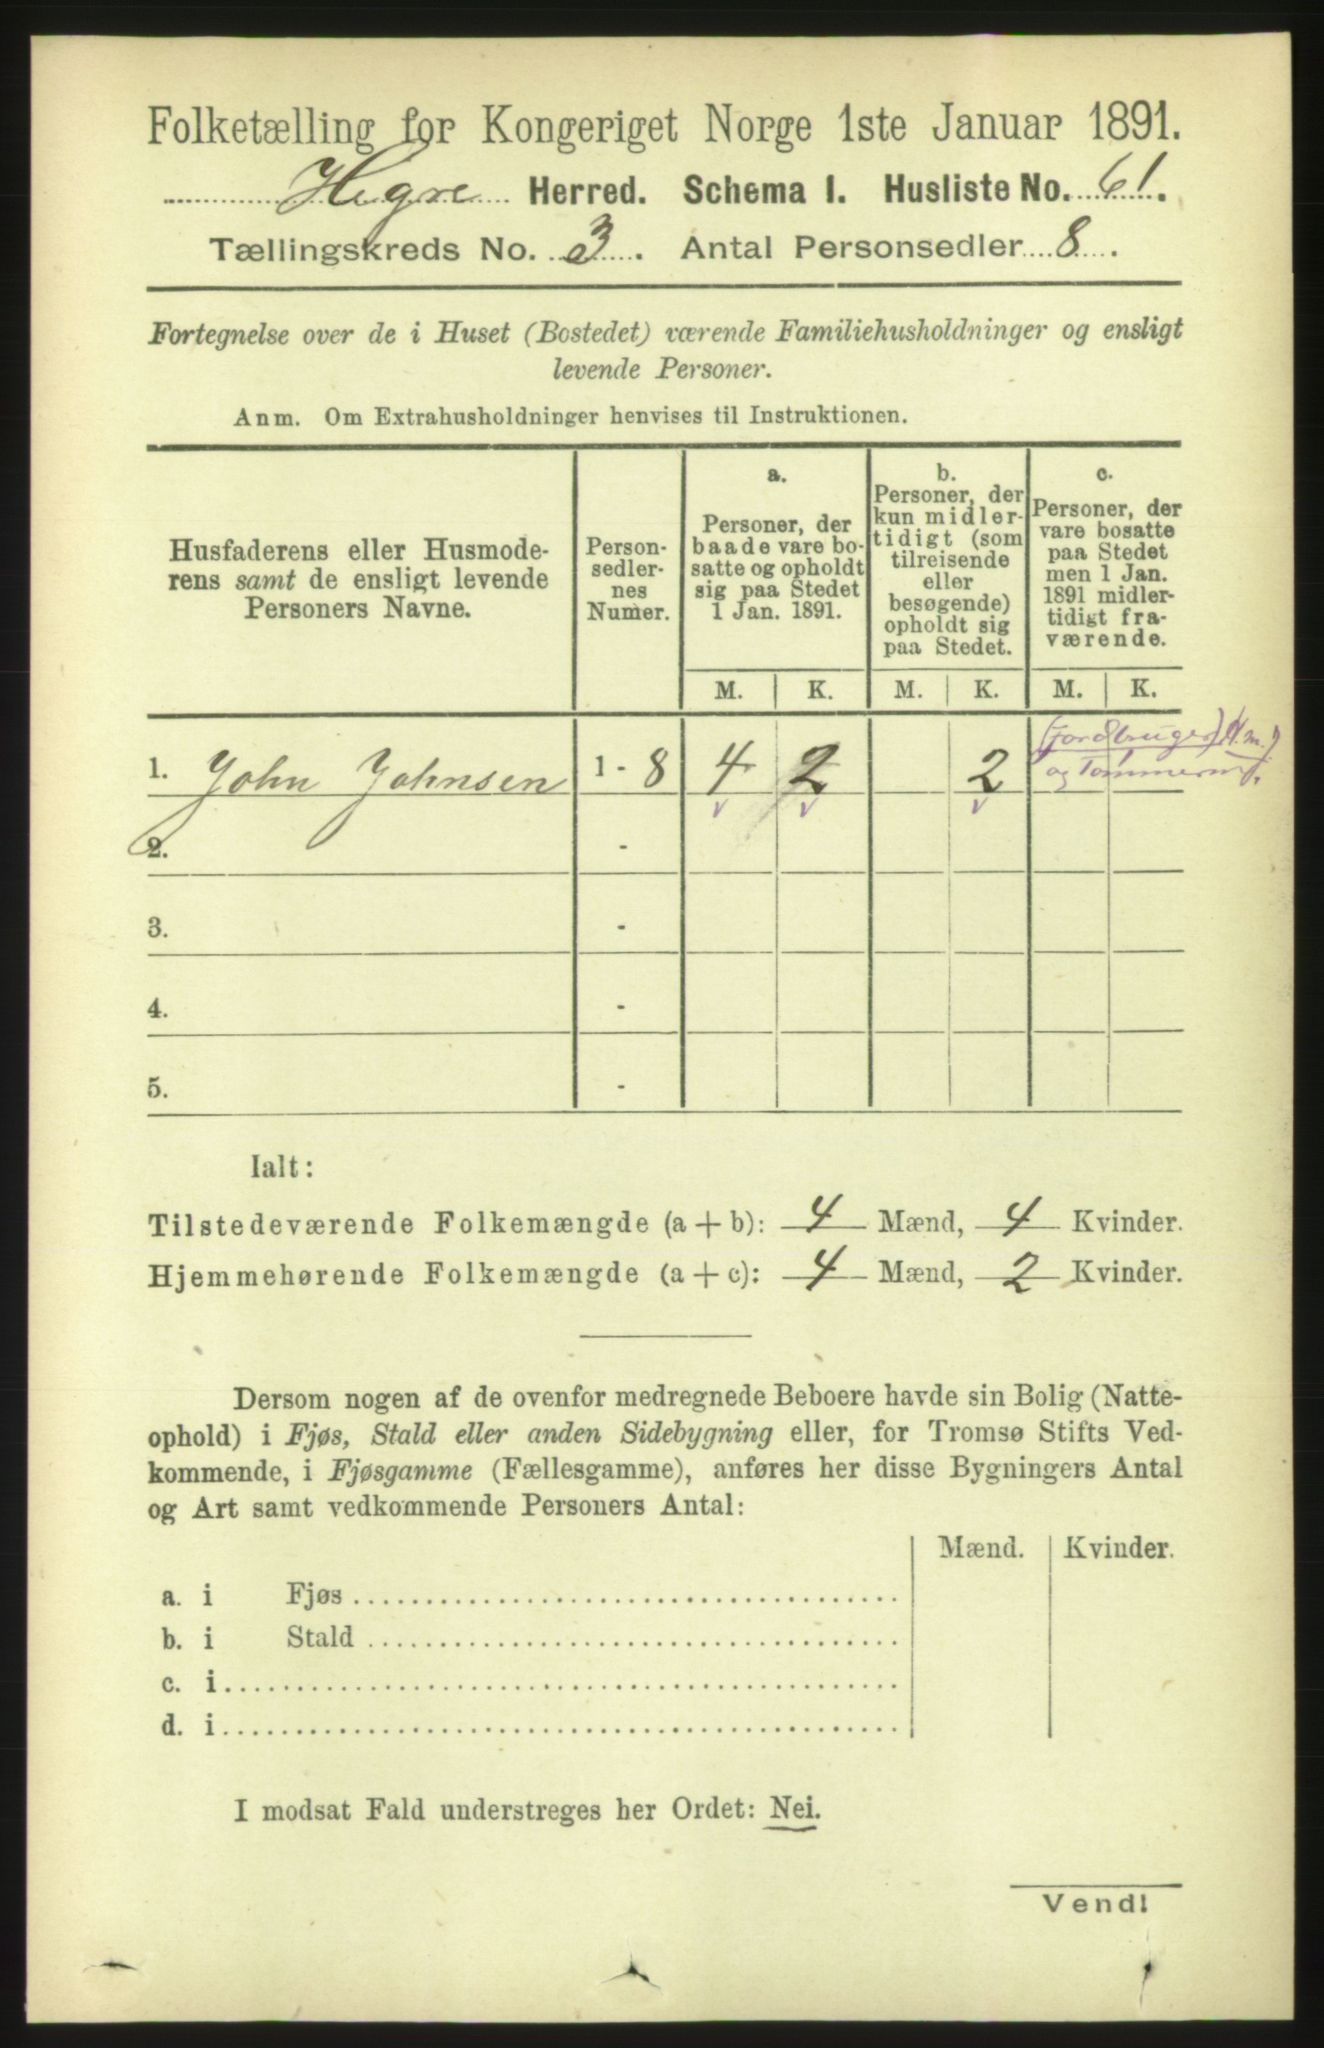 Folketælling for Kongeriget Norge 1ste Januar 1891.
Hegre Herred. Schema I. Husliste No. 61.
Tællingskreds No. 3. Antal Personsedler 8.
Fortegnelse over de i Huset (Bostedet) værende Familiehusholdninger og ensligt
levende Personer.
Anm. Om Extrahusholdninger henvises til Instruktionen.
Husfaderens eller Husmode-
rens samt de ensligt levende
Personers Navne.
Person-
sedler-
nes
Numer.
a.
Personer, der
baade vare bo-
satte og opholdt
sig paa Stedet
1 Jan. 1891.
b.
Personer, der
kun midler-
tidigt (som
tilreisende
eller
besøgende)
opholdt sig
paa Stedet.
c.
Personer, der
vare bosatte
paa Stedet
men 1 Jan.
1891 midler-
tidigt fra-
værende.
M. K. M. K. M. K.
1. John Johnsen 1 - 8 4 2 2 (Jordbruger
og Tømmerm.
2. -
3. -
4. -
5. -
Ialt:
Tilstedeværende Folkemængde (a + b): 4 Mænd, 4 Kvinder.
Hjemmehørende Folkemængde (a + c): 4 Mænd, 2 Kvinder.
Dersom nogen af de ovenfor medregnede Beboere havde sin Bolig (Natte-
ophold) i Fjøs, Stald eller anden Sidebygning eller, for Tromsø Stifts Ved-
kommende, i Fjøsgamme (Fællesgamme), anføres her disse Bygningers Antal
og Art samt vedkommende Personers Antal:
Mænd. Kvinder.
a. i Fjøs
b. i Stald
c. i
d. i
I modsat Fald understreges her Ordet: Nei.
Vend!